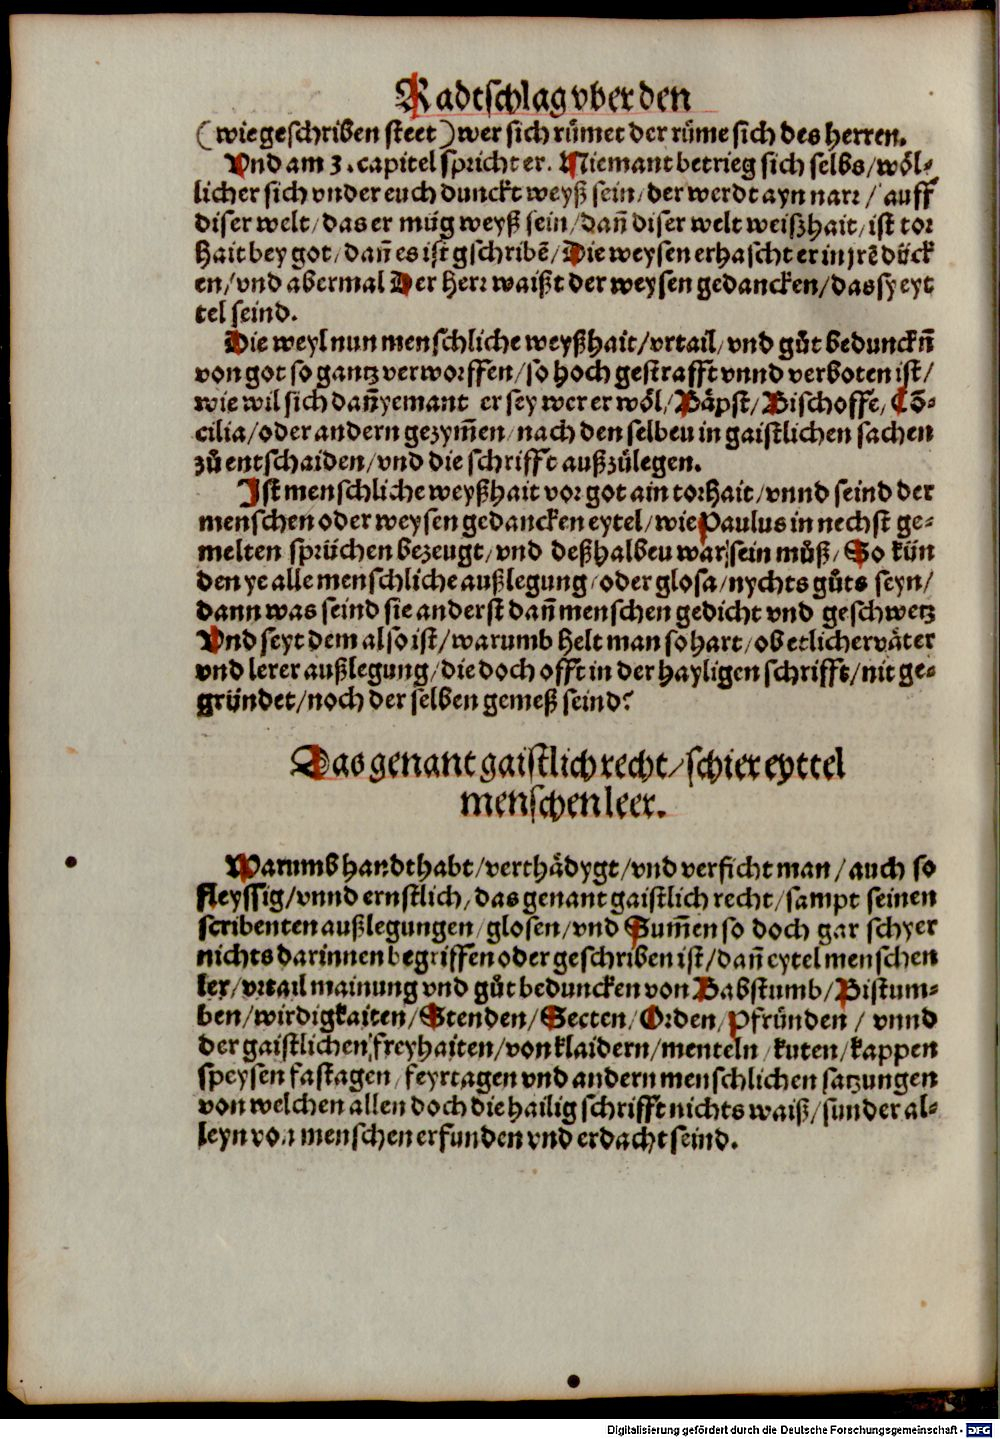 Radtschlag vber den
( wie geschriben steet ) wer sich růmet der růme sich des herren.
Vnd am 3. capitel spricht er. Niemant betrieg sich selbs/ wöl-
licher sich vnder euch dunckt weyß sein/ der werdt ayn narr/ auff
diser welt/ das er müg weyß sein/ dañ diser welt weißhait/ ist tor
hait bey got/ dañ es ist gschribẽ/ Die weysen erhascht er in jrẽ dück
en/ vnd abermal Der herr waißt der weysen gedancken/ das sy eyt
tel seind.
Die weyl nun menschliche weyßhait/ vrtail/ vnd gůt bedunckñ
von got so gantz verworffen/ so hoch gestrafft vnnd verboten ist/
wie wil sich dañ yemant er sey wer er wöl/ Bäpst/ Bischoffe/ Cõ-
cilia/ oder andern gezym̃en/ nach den selbeu in gaistlichen sachen
zů entschaiden/ vnd die schrifft außzůlegen.
Ist menschliche weyßhait vor got ain torhait/ vnnd seind der
menschen oder weysen gedancken eytel/ wie Paulus in nechst ge-
melten sprüchen bezeugt/ vnd deßhalbeu war sein můß/ So kün
den ye alle menschliche außlegung/ oder glosa/ nychts gůts seyn/
dann was seind sie anderst dañ menschen gedicht vnd geschwetz
Vnd seyt dem also ist/ warumb helt man so hart/ ob etlicher väter
vnd lerer außlegung/ die doch offt in der hayligen schrifft/ nit ge-
gründet/ noch der selben gemeß seind?
Das genant gaistlich recht/ schier eyttel
menschen leer.
Warumb handthabt/ verthädygt/ vnd verficht man/ auch so
fleyssig/ vnnd ernstlich/ das genant gaistlich recht/ sampt seinen
scribenten außlegungen/ glosen/ vnd Sum̃en so doch gar schyer
nichts darinnen begriffen oder geschriben ist/ dañ eytel menschen
ler/ vrtail mainung vnd gůt beduncken von Babstumb/ Bistum-
ben/ wirdigkaiten/ Stenden/ Secten/ Orden/ Pfründen/ vnnd
der gaistlichen freyhaiten/ von klaidern/ menteln/ kuten/ kappen
speysen fastagen/ feyrtagen vnd andern menschlichen satzungen
von welchen allen doch die hailig schrifft nichts waiß/ sunder al-
leyn von menschen erfunden vnd erdacht seind.
Digitalisierung gefördert durch die Deutsche Forschungsgemeinschaft - DFG